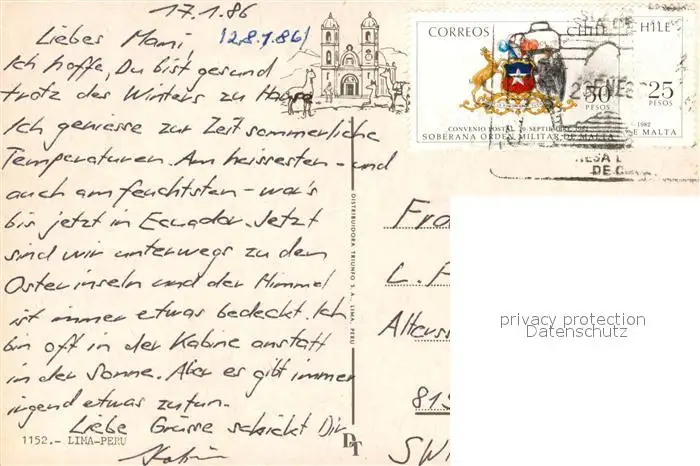 17.1.86
Liebes Mami, (28.1.86)
Ich hoffe, Du bist gesund
trotz des Winters zu Hause
Ich geniesse zur Zeit sommerliche
Temperaturen. Am heissesten - und
auch am feuchtsten - war's
bis jetzt in Ecuador. Jetzt
sind wir unterwegs zu den
Osterinseln und der Himmel
ist immer etwas bedeckt. Ich
bin oft in der Kabine anstatt
in der Sonne. Aber es gibt immer
irgend etwas zu tun.
Liebe Grüsse schickt Dir
1152.- LIMA-PERU
DISTRIBUIDORA TRIUNFO S.A. LIMA, PERU
DT
CORREOS CHILE
30
PESOS
CONVENIO POSTAL
SOBERANA ORDEN MILITAR DE MALTA
HILE
25
PESOS
1982
E MALTA
ENE
DE
Fra
L. F
Alters
815
SW
privacy protection
Datenschutz